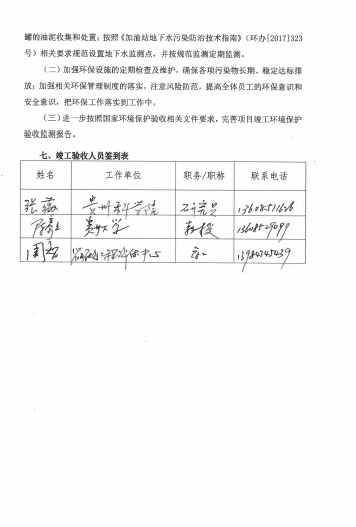 罐的油泥收集和处置；按照《加油站地下水污染防治技术指南》（环办[2017]323
号）相关要求规范设置地下水监测点，并按规范监测定期监测。
（二）加强环保设施的定期检查及维护，确保各项污染物长期、稳定达标排
放；加强相关环保管理制度的落实，注意风险防范，提高全体员工的环保意识和
安全意识，把环保工作落实到工作中。
（三）进一步按照国家环境保护验收相关文件要求，完善项目竣工环境保护
验收监测报告。
七、竣工验收人员签到表
姓名 工作单位 职务/职称 联系电话
张薇 贵州科学院 研究员 13608511626
贵州大学 教授
高工 13984345439